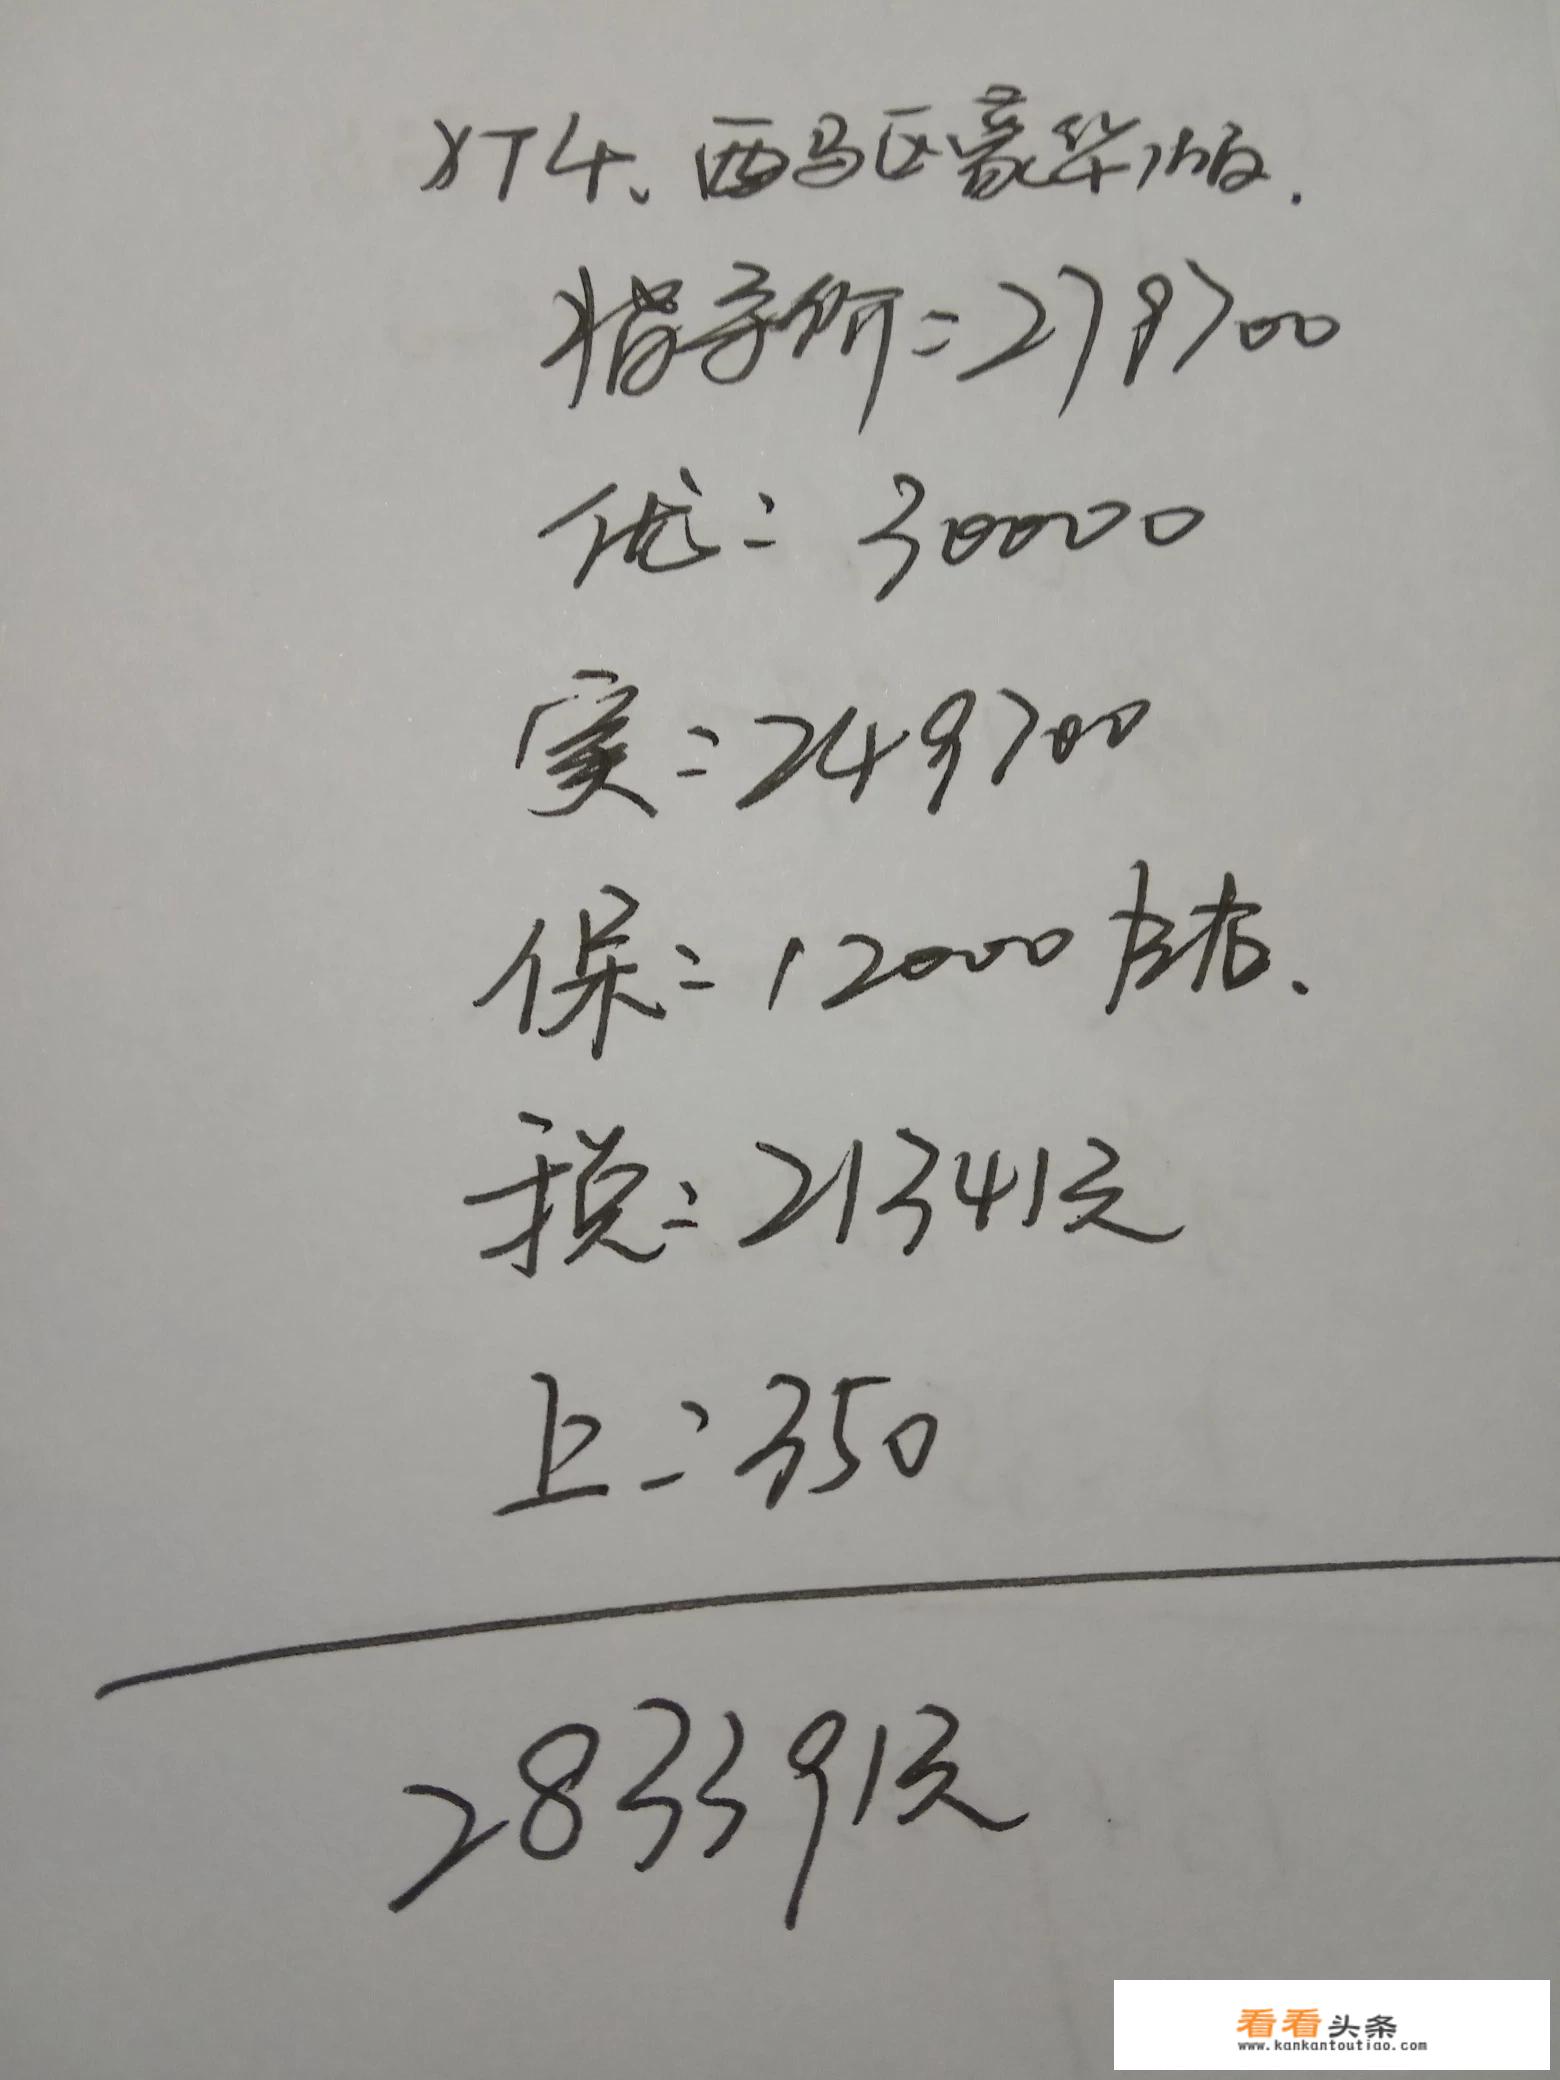 XT4、两驱豪华版.
指导价=279700
优=30000
实=249700
保=12000左右.
税=21341元
上=350
283391元
看看头条
www.kankantoutiao.com